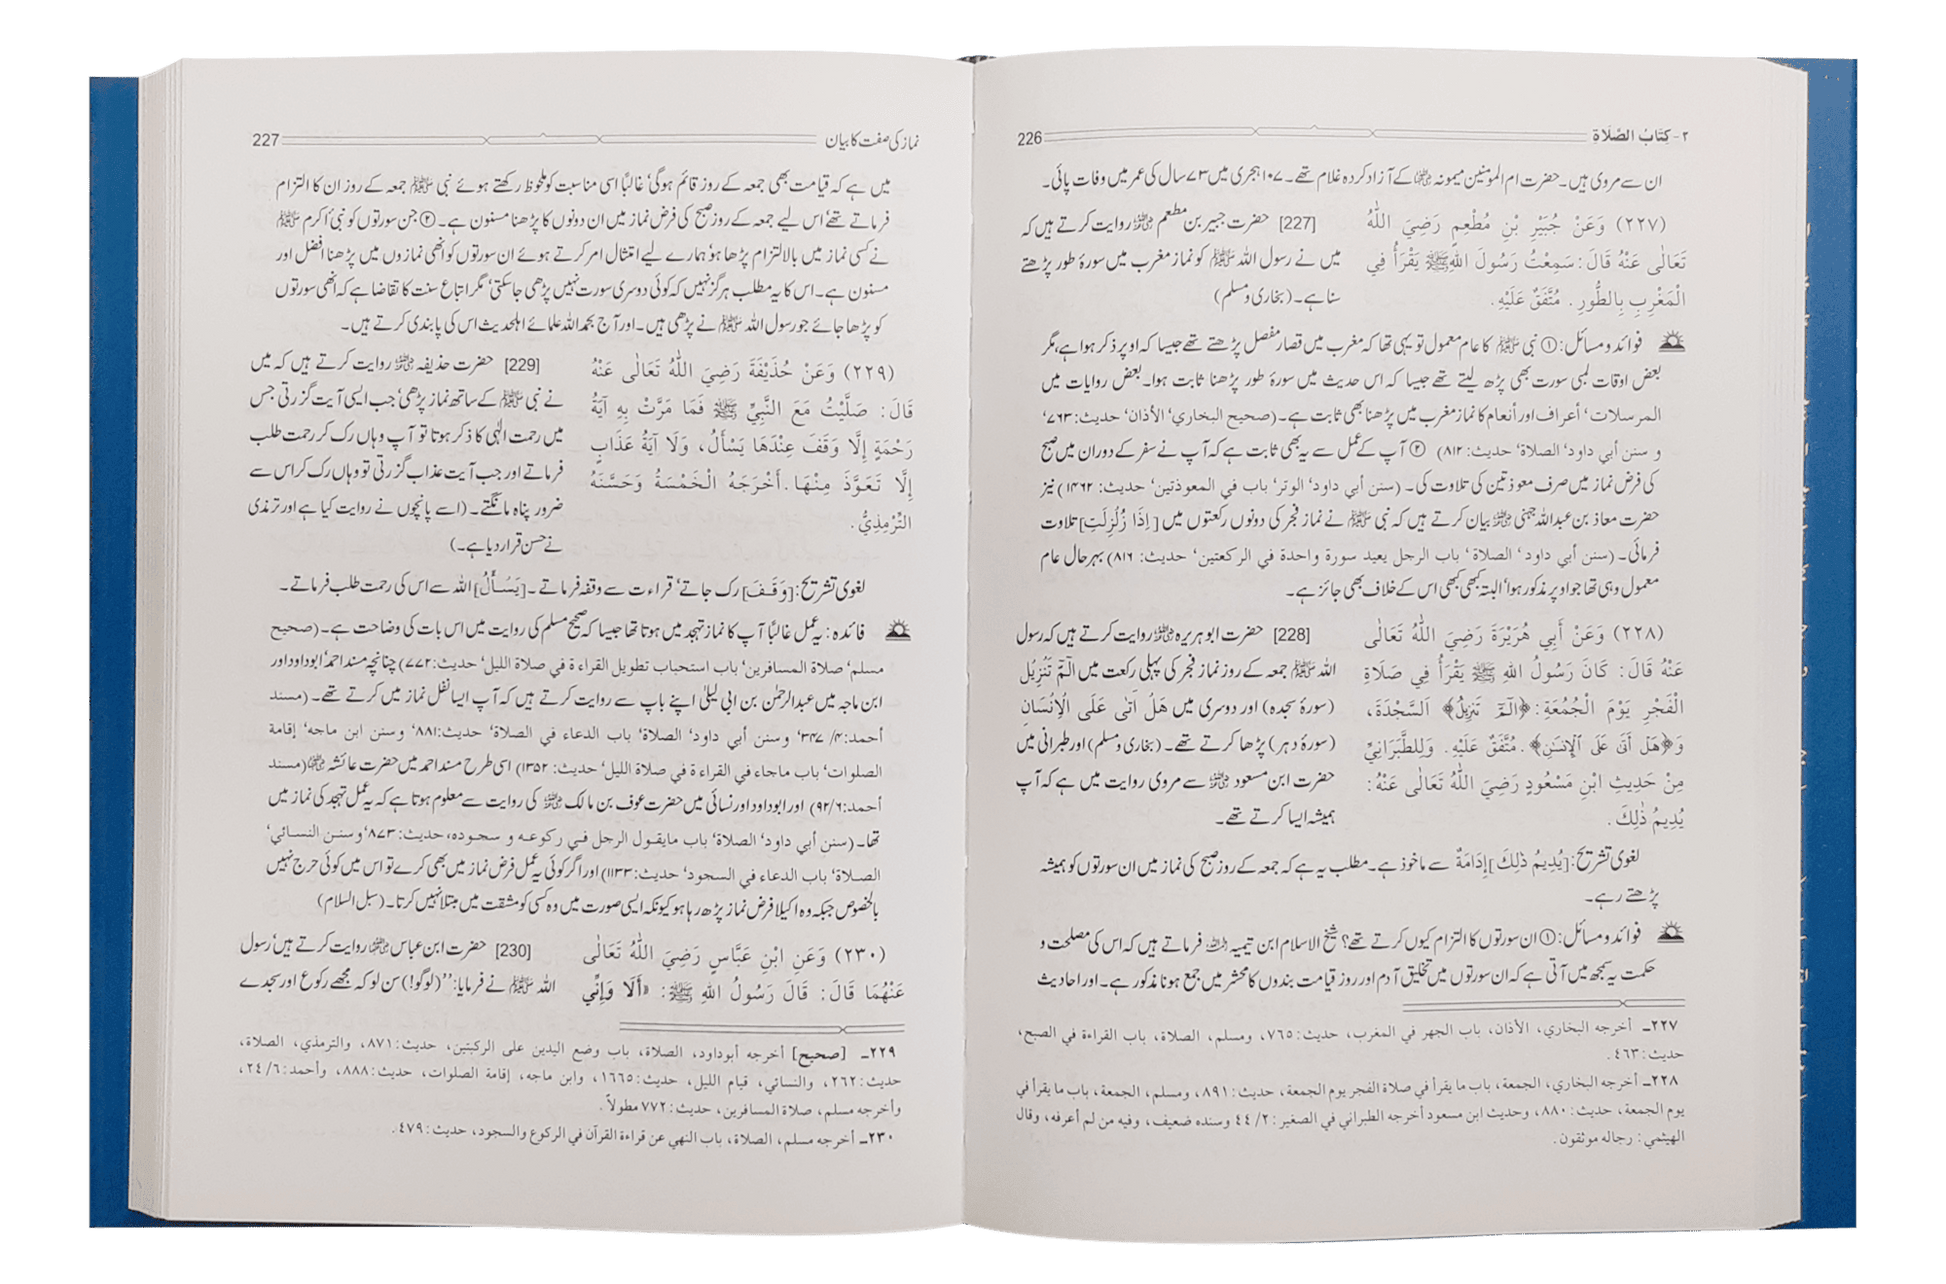 ٢- كِتَابُ الصَّلَاةِ 226
ان سے مروی ہیں۔ حضرت ام المومنین میمونہ رضی اللہ عنہا کے آزاد کردہ غلام تھے۔ ۱۰۷ ہجری میں ۷۳ سال کی عمر میں وفات پائی۔
(٢٢٧) وَعَنْ جُبَيْرِ بْنِ مُطْعِمٍ رَضِيَ اللّٰهُ
تَعَالٰى عَنْهُ قَالَ: سَمِعْتُ رَسُولَ اللهِ ﷺ يَقْرَأُ فِي
الْمَغْرِبِ بِالطُّورِ. مُتَّفَقٌ عَلَيْهِ.
[227] حضرت جبیر بن مطعم رضی اللہ عنہ روایت کرتے ہیں کہ
میں نے رسول اللہ ﷺ کو نماز مغرب میں سورۂ طور پڑھتے
سنا ہے۔ (بخاری و مسلم)
فوائد و مسائل: ① نبی ﷺ کا عام معمول تو یہی تھا کہ مغرب میں قصار مفصل پڑھتے تھے جیسا کہ اوپر ذکر ہوا ہے، مگر
بعض اوقات لمبی سورت بھی پڑھ لیتے تھے جیسا کہ اس حدیث میں سورۂ طور پڑھنا ثابت ہوا۔ بعض روایات میں
المرسلات' أعراف اور أنعام کا نماز مغرب میں پڑھنا بھی ثابت ہے۔ (صحیح البخاري' الأذان' حدیث: ۷۶۳'
و سنن أبي داود' الصلاة' حدیث: ۸۱۲) ② آپ کے عمل سے یہ بھی ثابت ہے کہ آپ نے سفر کے دوران میں صبح
کی فرض نماز میں صرف معوذتین کی تلاوت کی۔ (سنن أبي داود' الوتر' باب في المعوذتين' حدیث: ۱۴۶۲) نیز
حضرت معاذ بن عبداللہ جہنی رضی اللہ عنہ بیان کرتے ہیں کہ نبی ﷺ نے نماز فجر کی دونوں رکعتوں میں [إِذَا زُلْزِلَتِ] تلاوت
فرمائی۔ (سنن أبي داود' الصلاة' باب الرجل يعيد سورة واحدة في الركعتين' حدیث: ۸۱۶) بہرحال عام
معمول وہی تھا جو اوپر مذکور ہوا' البتہ کبھی کبھی اس کے خلاف بھی جائز ہے۔
(٢٢٨) وَعَنْ أَبِي هُرَيْرَةَ رَضِيَ اللّٰهُ تَعَالٰى
عَنْهُ قَالَ: كَانَ رَسُولُ اللهِ ﷺ يَقْرَأُ فِي صَلَاةِ
الْفَجْرِ يَوْمَ الْجُمُعَةِ: ﴿الٓمٓ تَنزِيلُ﴾ اَلسَّجْدَةَ،
وَ﴿هَلْ أَتَىٰ عَلَى ٱلْإِنسَٰنِ﴾. مُتَّفَقٌ عَلَيْهِ. وَلِلطَّبَرَانِيِّ
مِنْ حَدِيثِ ابْنِ مَسْعُودٍ رَضِيَ اللّٰهُ تَعَالٰى عَنْهُ:
يُدِيمُ ذٰلِكَ.
[228] حضرت ابوہریرہ رضی اللہ عنہ روایت کرتے ہیں کہ رسول
اللہ ﷺ جمعہ کے روز نماز فجر کی پہلی رکعت میں الٓمّٓ تَنْزِیْلُ
(سورۂ سجدہ) اور دوسری میں هَلْ اَتٰى عَلَى الْاِنْسَانِ
(سورۂ دہر) پڑھا کرتے تھے۔ (بخاری و مسلم) اور طبرانی میں
حضرت ابن مسعود رضی اللہ عنہ سے مروی روایت میں ہے کہ آپ
ہمیشہ ایسا کرتے تھے۔
لغوی تشریح: [يُدِيمُ ذٰلِكَ] إِدَامَةٌ سے ماخوذ ہے۔ مطلب یہ ہے کہ جمعہ کے روز صبح کی نماز میں ان سورتوں کو ہمیشہ
پڑھتے رہے۔
فوائد و مسائل: ① ان سورتوں کا التزام کیوں کرتے تھے؟ شیخ الاسلام ابن تیمیہ رحمہ اللہ فرماتے ہیں کہ اس کی مصلحت و
حکمت یہ سمجھ میں آتی ہے کہ ان سورتوں میں تخلیق آدم اور روز قیامت بندوں کا محشر میں جمع ہونا مذکور ہے۔ اور احادیث
٢٢٧ـ أخرجه البخاري، الأذان، باب الجهر في المغرب، حديث: ٧٦٥، ومسلم، الصلاة، باب القراءة في الصبح،
حديث: ٤٦٣.
٢٢٨ـ أخرجه البخاري، الجمعة، باب ما يقرأ في صلاة الفجر يوم الجمعة، حديث: ٨٩١، ومسلم، الجمعة، باب ما يقرأ في
يوم الجمعة، حديث: ٨٨٠، وحديث ابن مسعود أخرجه الطبراني في الصغير: ٢/ ٤٤ وسنده ضعيف، وفيه من لم أعرفه، وقال
الهيثمي: رجاله موثقون.
نماز کی صفت کا بیان 227
میں ہے کہ قیامت بھی جمعہ کے روز قائم ہوگی' غالباً اسی مناسبت کو ملحوظ رکھتے ہوئے نبی ﷺ جمعہ کے روز ان کا التزام
فرماتے تھے' اس لیے جمعہ کے روز صبح کی فرض نماز میں ان دونوں کا پڑھنا مسنون ہے۔ ② جن سورتوں کو نبی ٔاکرم ﷺ
نے کسی نماز میں بالالتزام پڑھا ہو' ہمارے لیے امتثال امر کرتے ہوئے ان سورتوں کو انھی نمازوں میں پڑھنا افضل اور
مسنون ہے۔ اس کا یہ مطلب ہرگز نہیں کہ کوئی دوسری سورت نہیں پڑھی جاسکتی' مگر اتباع سنت کا تقاضا ہے کہ انھی سورتوں
کو پڑھا جائے جو رسول اللہ ﷺ نے پڑھی ہیں۔ اور آج بحمد اللہ علمائے اہلحدیث اس کی پابندی کرتے ہیں۔
(٢٢٩) وَعَنْ حُذَيْفَةَ رَضِيَ اللّٰهُ تَعَالٰى عَنْهُ
قَالَ: صَلَّيْتُ مَعَ النَّبِيِّ ﷺ فَمَا مَرَّتْ بِهِ آيَةُ
رَحْمَةٍ إِلَّا وَقَفَ عِنْدَهَا يَسْأَلُ، وَلَا آيَةُ عَذَابٍ
إِلَّا تَعَوَّذَ مِنْهَا. أَخْرَجَهُ الْخَمْسَةُ وَحَسَّنَهُ
التِّرْمِذِيُّ.
[229] حضرت حذیفہ رضی اللہ عنہ روایت کرتے ہیں کہ میں
نے نبی ﷺ کے ساتھ نماز پڑھی' جب ایسی آیت گزرتی جس
میں رحمت الٰہی کا ذکر ہوتا تو آپ وہاں رک کر رحمت طلب
فرماتے اور جب آیت عذاب گزرتی تو وہاں رک کر اس سے
ضرور پناہ مانگتے۔ (اسے پانچوں نے روایت کیا ہے اور ترمذی
نے حسن قرار دیا ہے۔)
لغوی تشریح: [وَقَفَ] رک جاتے' قراءت سے وقفہ فرماتے۔ [يَسْأَلُ] اللہ سے اس کی رحمت طلب فرماتے۔
فائدہ: یہ عمل غالباً آپ کا نماز تہجد میں ہوتا تھا جیسا کہ صحیح مسلم کی روایت میں اس بات کی وضاحت ہے۔ (صحيح
مسلم' صلاة المسافرين' باب استحباب تطويل القراءة في صلاة الليل' حدیث: ۷۷۲) چنانچہ مسند احمد' ابوداود اور
ابن ماجہ میں عبدالرحمٰن بن ابی لیلیٰ اپنے باپ سے روایت کرتے ہیں کہ آپ ایسا نفل نماز میں کرتے تھے۔ (مسند
أحمد: ۴/ ۳۴۷' وسنن أبي داود' الصلاة' باب الدعاء في الصلاة' حدیث: ۸۸۱' وسنن ابن ماجه' إقامة
الصلوات' باب ماجاء في القراءة في صلاة الليل' حدیث: ۱۳۵۲) اسی طرح مسند احمد میں حضرت عائشہ رضی اللہ عنہا (مسند
أحمد: ۶/ ۹۲) اور ابوداود اور نسائی میں حضرت عوف بن مالک رضی اللہ عنہ کی روایت سے معلوم ہوتا ہے کہ یہ عمل تہجد کی نماز میں
تھا۔ (سنن أبي داود' الصلاة' باب مايقول الرجل في ركوعه و سجوده، حدیث: ۸۷۳' وسنن النسائي'
الصلاة' باب الدعاء في السجود' حدیث: ۱۱۳۳) اور اگر کوئی یہ عمل فرض نماز میں بھی کرے تو اس میں کوئی حرج نہیں
بالخصوص جبکہ وہ اکیلا فرض نماز پڑھ رہا ہو کیونکہ ایسی صورت میں وہ کسی کو مشقت میں مبتلا نہیں کرتا۔ (سبل السلام)
(٢٣٠) وَعَنِ ابْنِ عَبَّاسٍ رَضِيَ اللّٰهُ تَعَالٰى
عَنْهُمَا قَالَ: قَالَ رَسُولُ اللهِ ﷺ: «أَلَا وَإِنِّي
[230] حضرت ابن عباس رضی اللہ عنہما روایت کرتے ہیں' رسول
اللہ ﷺ نے فرمایا: ''(لوگو!) سن لو کہ مجھے رکوع اور سجدے
٢٢٩ـ [صحيح] أخرجه أبوداود، الصلاة، باب وضع اليدين على الركبتين، حديث: ٨٧١، والترمذي، الصلاة،
حديث: ٢٦٢، والنسائي، قيام الليل، حديث: ١٦٦٥، وابن ماجه، إقامة الصلوات، حديث: ٨٨٨، وأحمد: ٦/ ٢٤،
وأخرجه مسلم، صلاة المسافرين، حديث: ٧٧٢ مطولاً.
٢٣٠ـ أخرجه مسلم، الصلاة، باب النهي عن قراءة القرآن في الركوع والسجود، حديث: ٤٧٩.